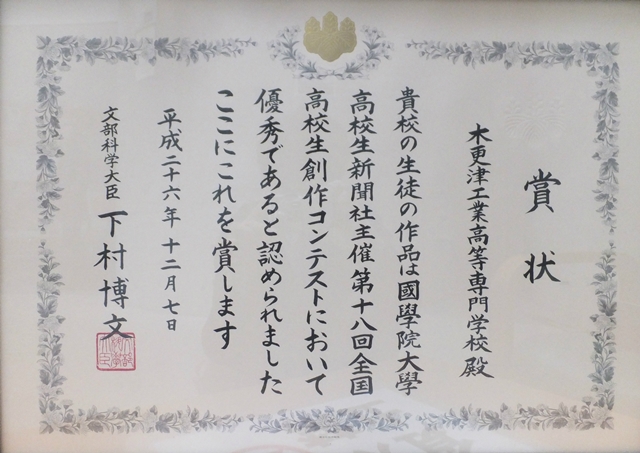 賞状
木更津工業高等専門学校殿
貴校の生徒の作品は國學院大學
高校生新聞社主催第十八回全国
高校生創作コンテストにおいて
優秀であると認められました
ここにこれを賞します
平成二十六年十二月七日
文部科学大臣 下村博文